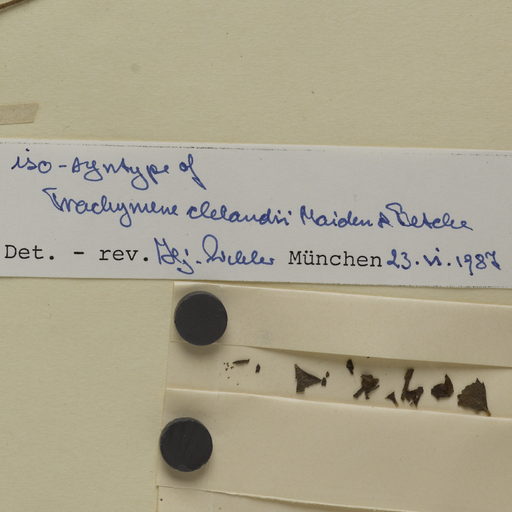 iso-syntype of
Trachymene clelandii Maiden & Betche
Det. - rev. Hj. Eichler München 23.vi.1987